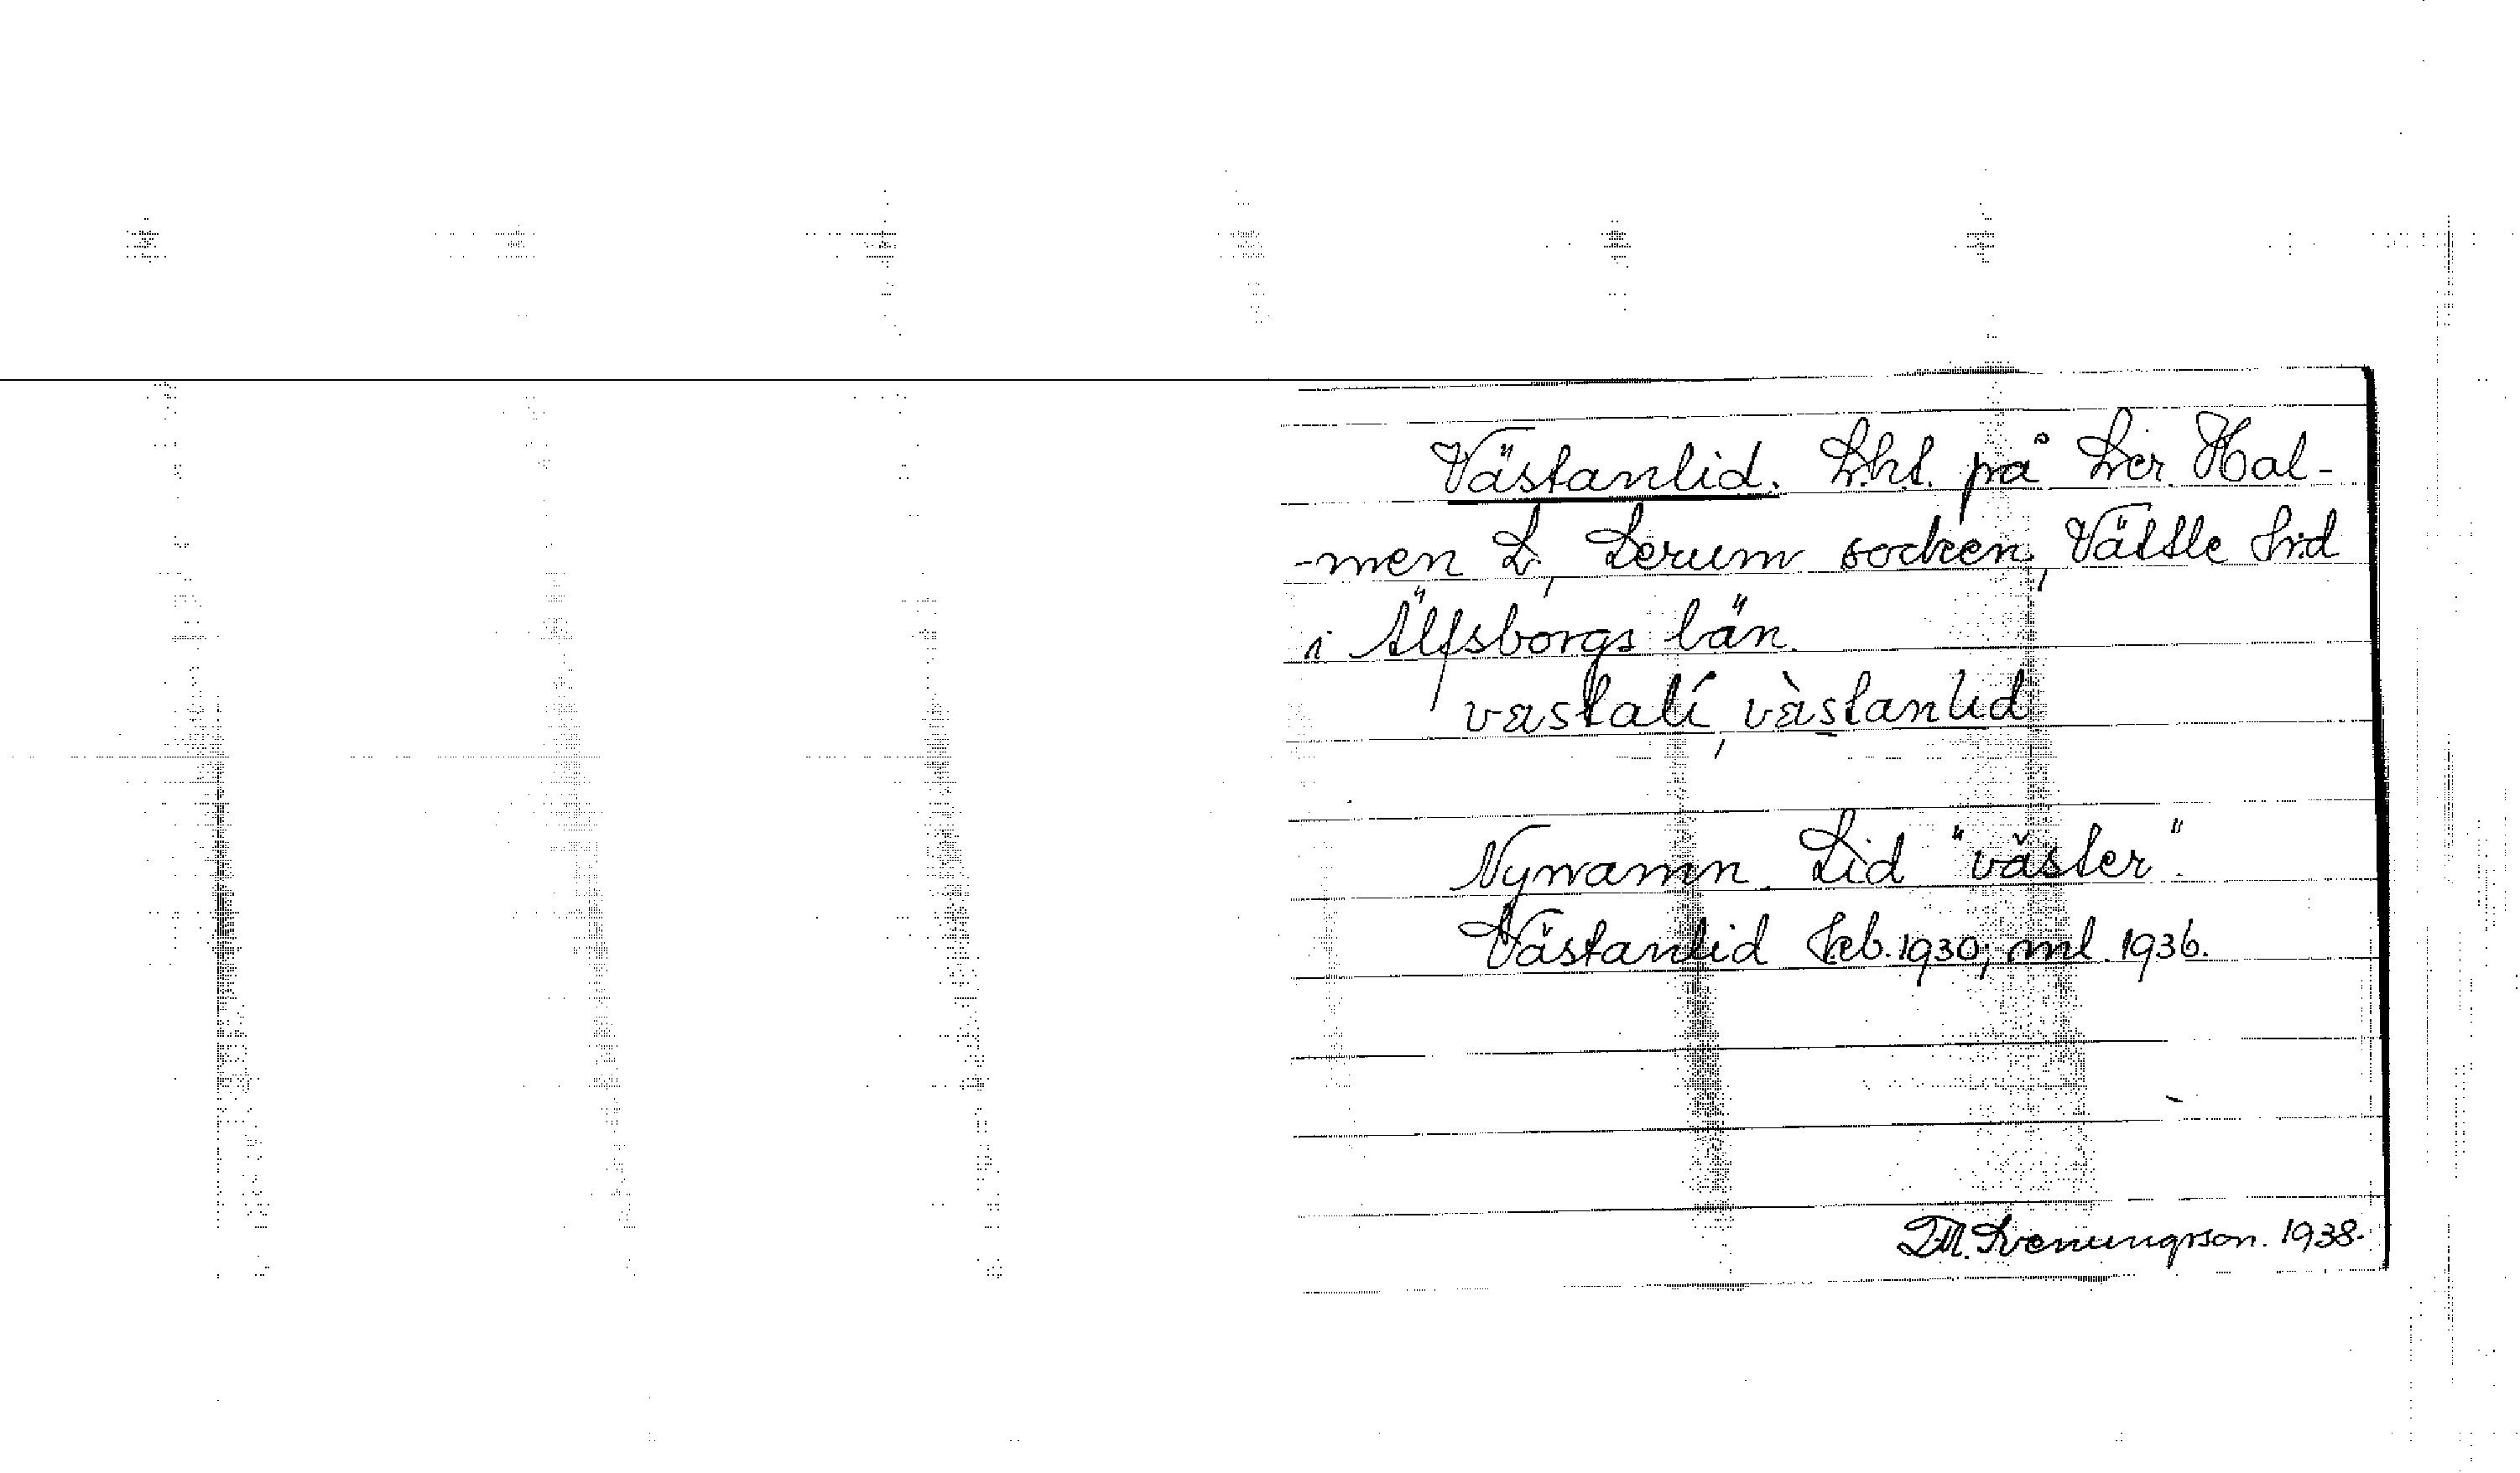 Västanlid. Lht. på Ler Hal-
-men L, Lerum socken, Vättle hrd
i Älfsborgs län.
västalí, vàstanlid
Nynamn Lid "väster".
Västanlid Jeb. 1930; ml. 1936.
Svenungsson. 1938.